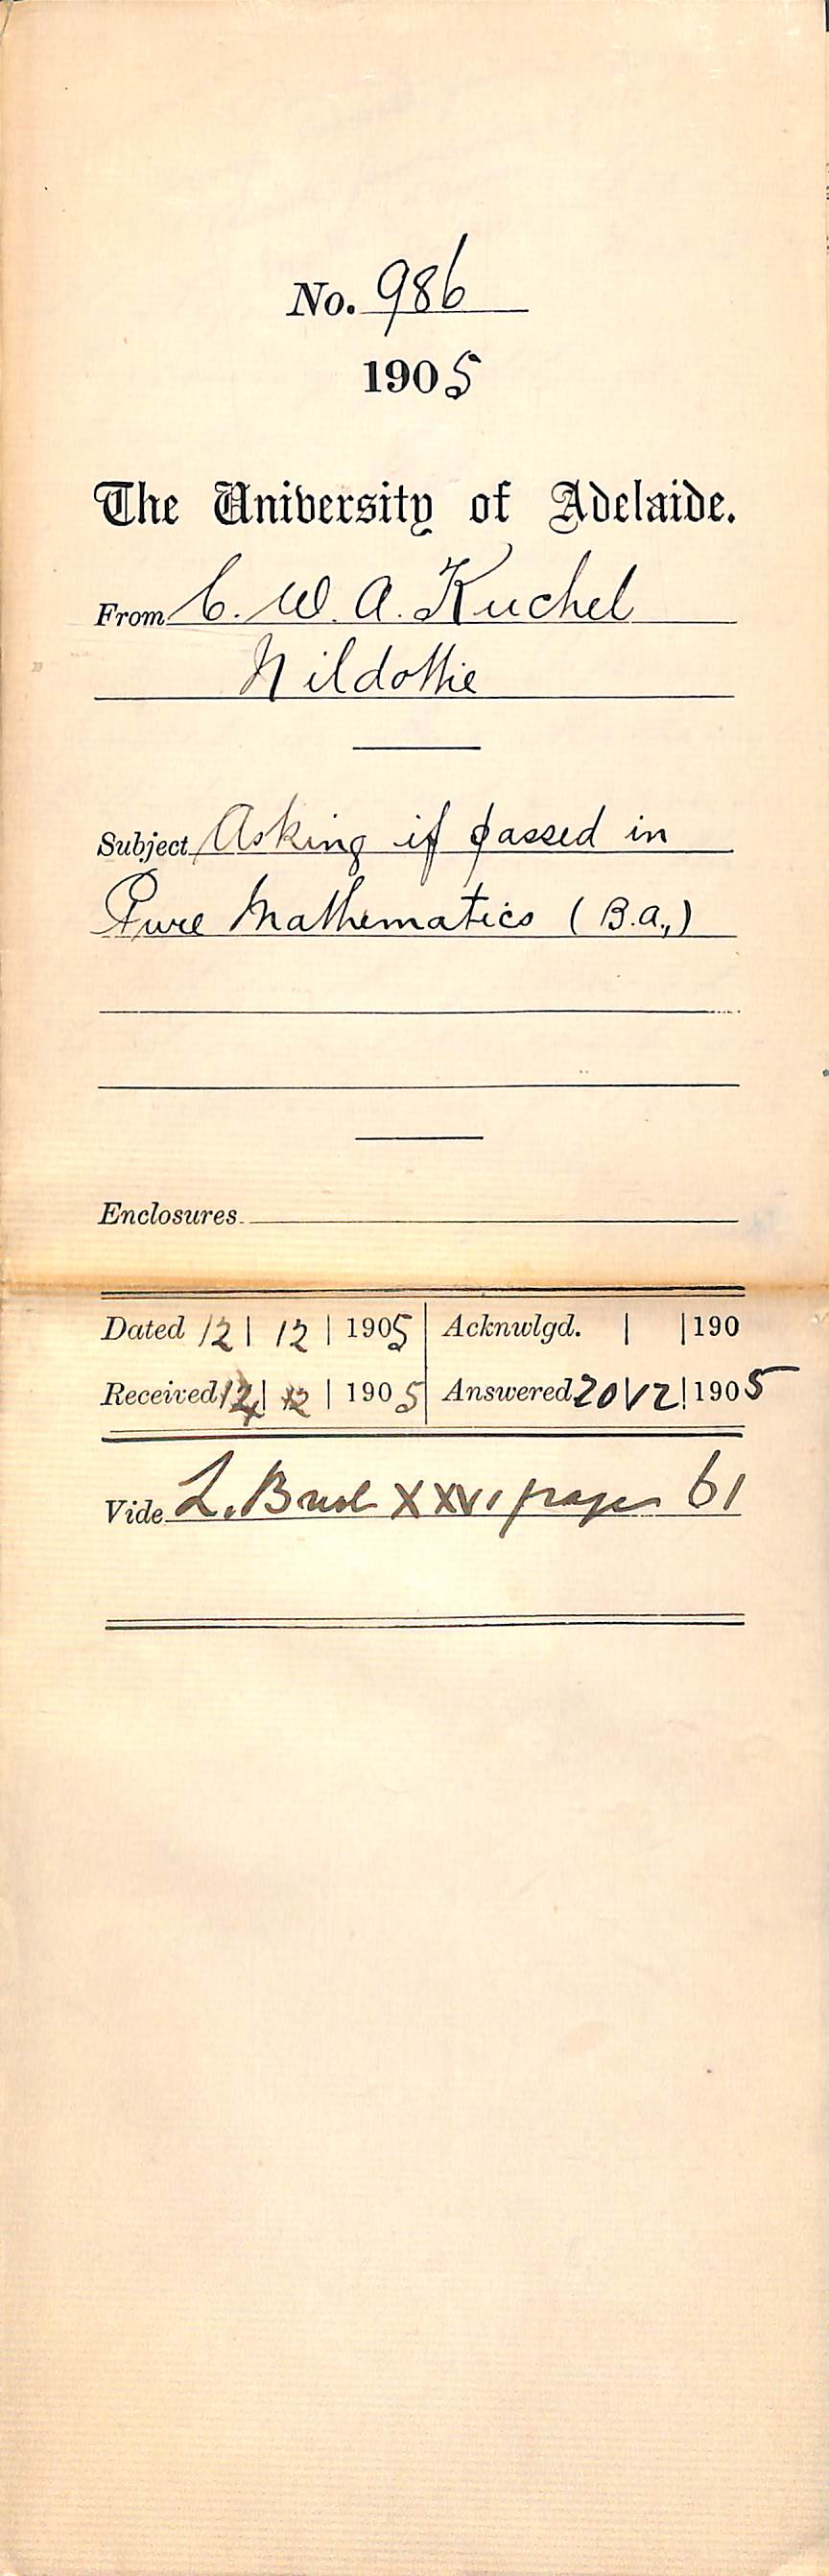 No. 986
1905
The University of Adelaide.
From C. W. A. Kuchel
Nildottie
Subject Asking if passed in
Pure Mathematics (B.A.,)
Enclosures
Dated 12 | 12 | 1905 Acknwlgd. | | 190
Received | 12 | 1905 Answered 20 | 12 | 1905
Vide L. Book XXVI page 61